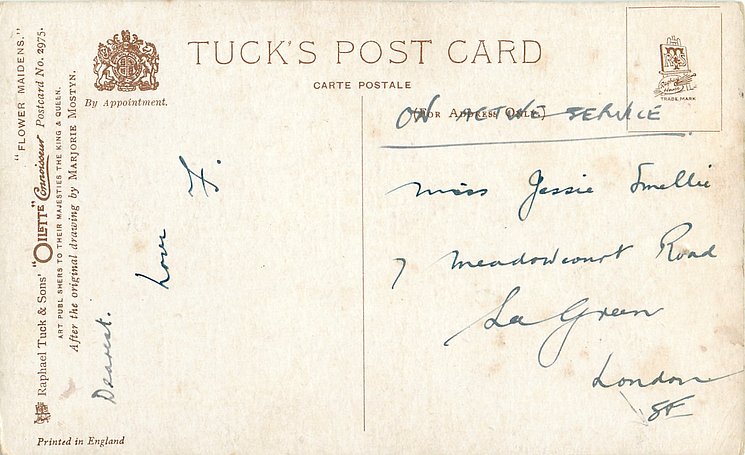 TUCK'S POST CARD
CARTE POSTALE
By Appointment.
(FOR ADDRESS ONLY.)
ON ACTIVE SERVICE
TRADE MARK
"FLOWER MAIDENS."
Raphael Tuck & Sons' "OILETTE" Connoisseur Postcard No. 2975.
ART PUBLISHERS TO THEIR MAJESTIES THE KING & QUEEN.
After the original drawing by MARJORIE MOSTYN.
Dearest.
Love
F.
Miss Jessie Smellie
7 Meadowcourt Road
La Green
London
SE
Printed in England